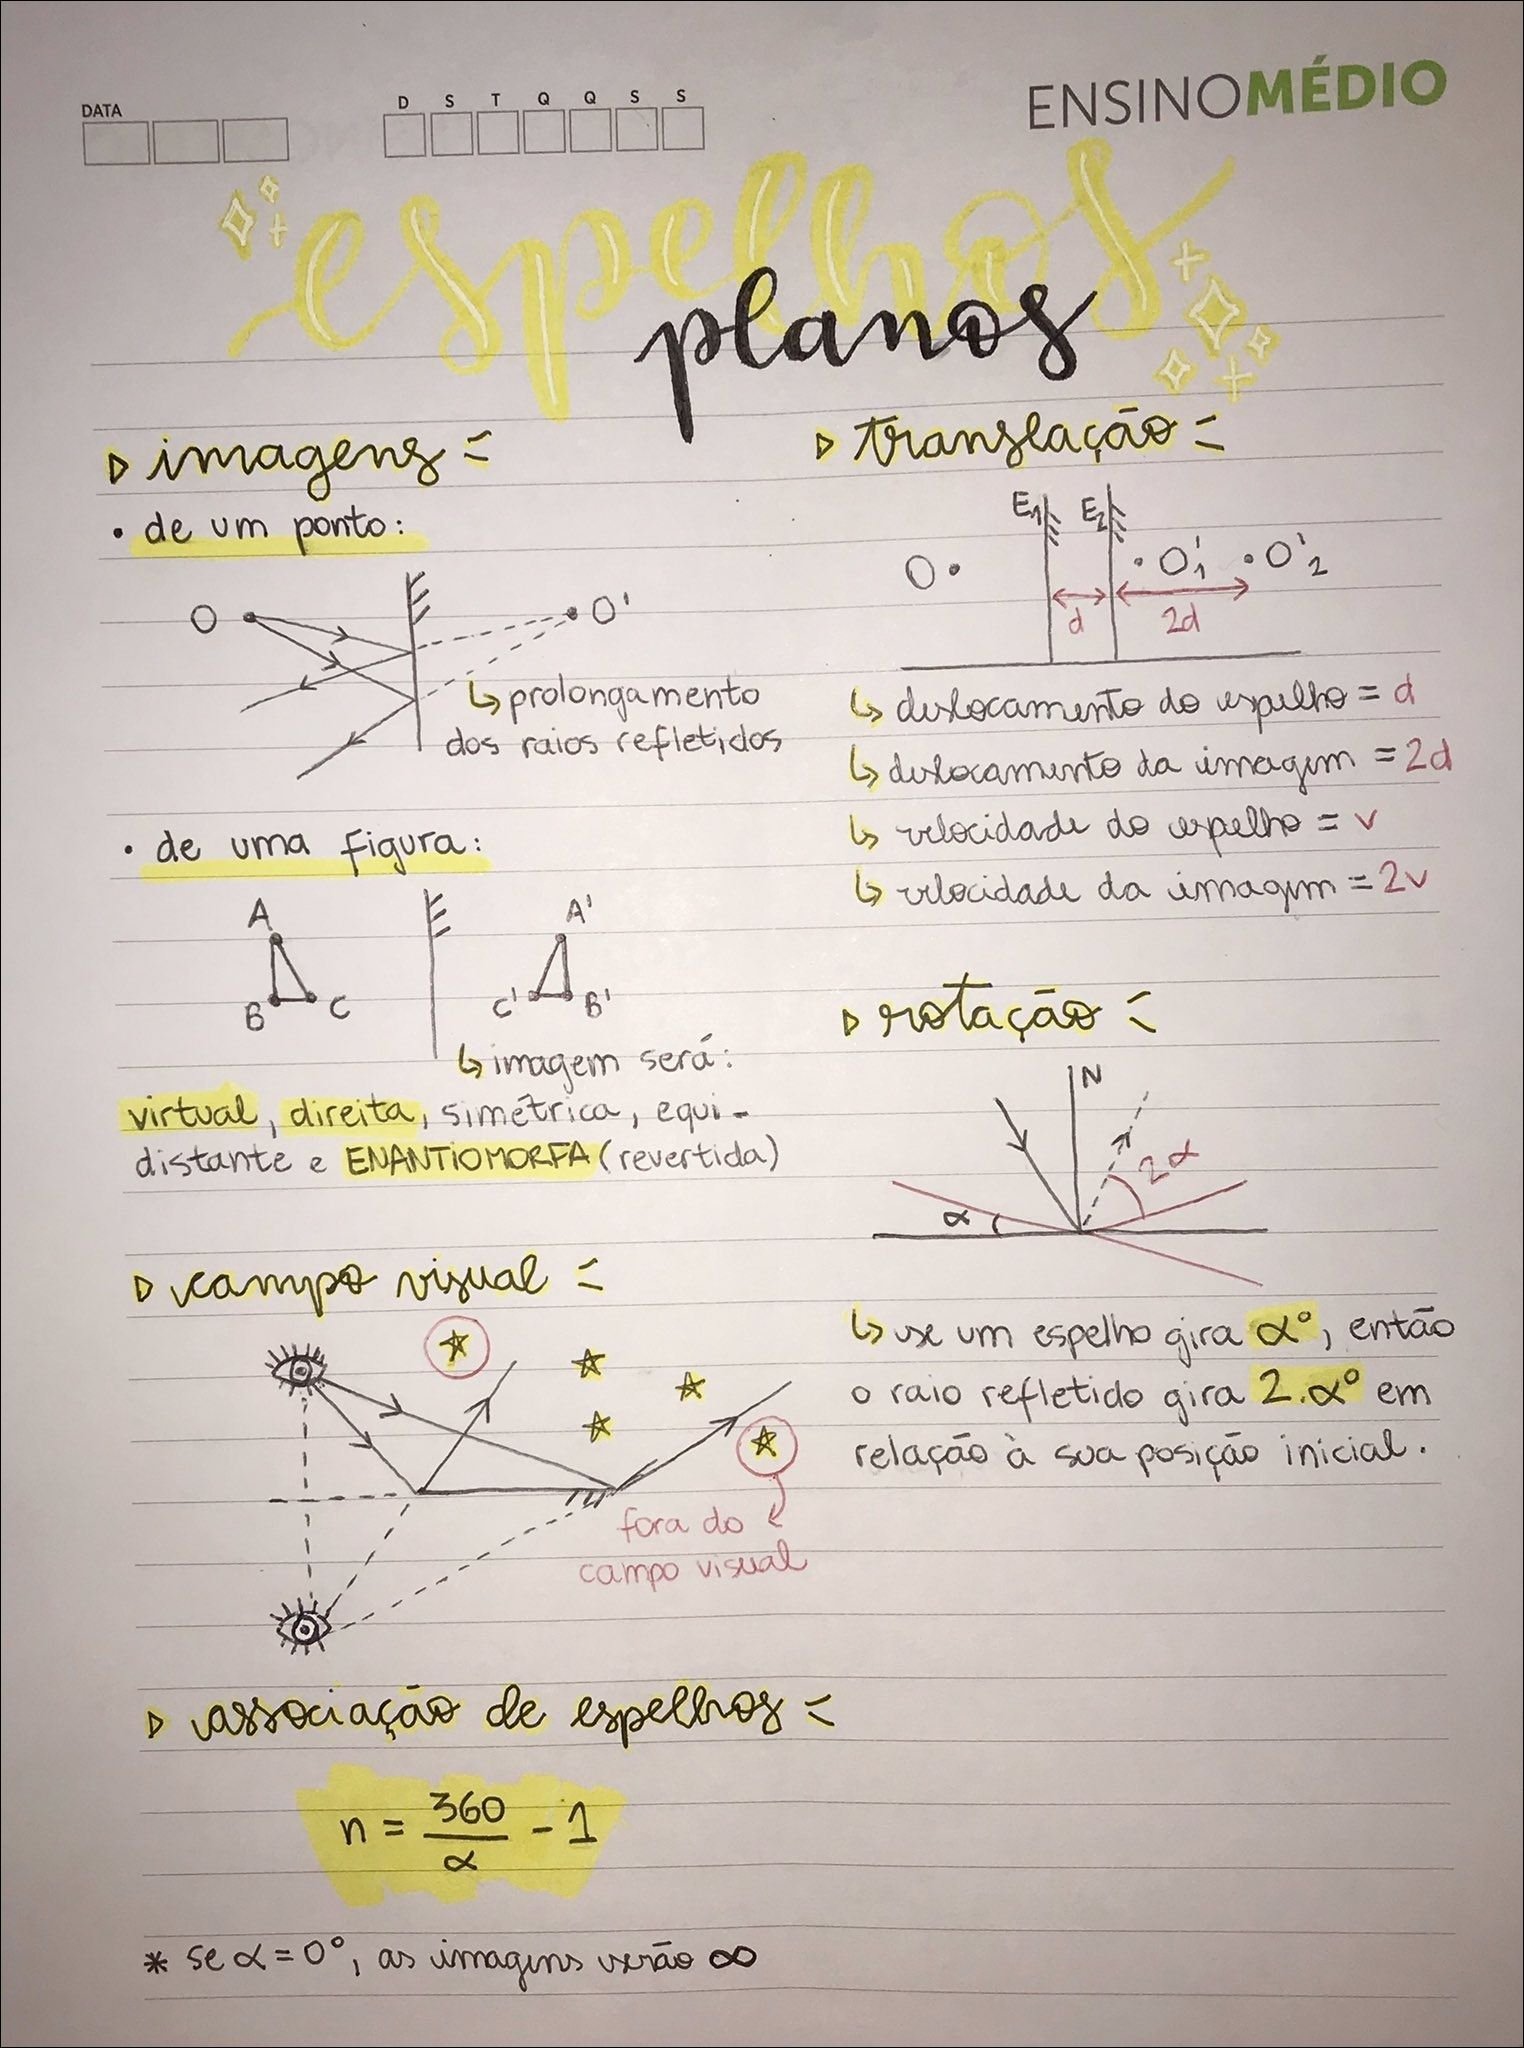 DATA
D S T Q Q S S
ENSINOMÉDIO
espelhos
planos
imagens =
• de um ponto:
O
O'
↳ prolongamento
dos raios refletidos
• de uma figura:
A
B
C
A'
C'
B'
↳ imagem será:
virtual, direita, simétrica, equi-
distante e ENANTIOMORFA (revertida)
campo visual =
fora do
campo visual
associação de espelhos =
n = 360/α - 1
* se α = 0°, as imagens serão ∞
translação =
E1 E2
O • • O'1 • O'2
d
2d
↳ deslocamento do espelho = d
↳ deslocamento da imagem = 2d
↳ velocidade do espelho = v
↳ velocidade da imagem = 2v
rotação =
N
2α
α
↳ se um espelho gira α°, então
o raio refletido gira 2.α° em
relação à sua posição inicial.